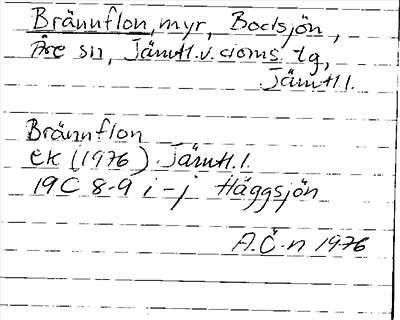 Brännflon, myr, Bodsjön,
Åre sn, Jämtl. v. doms. tg,
Jämtl. l.
Brännflon
ek (1976). Jämtl. l.
19C 8-9 i-j Häggsjön
A.Ö-n 1976